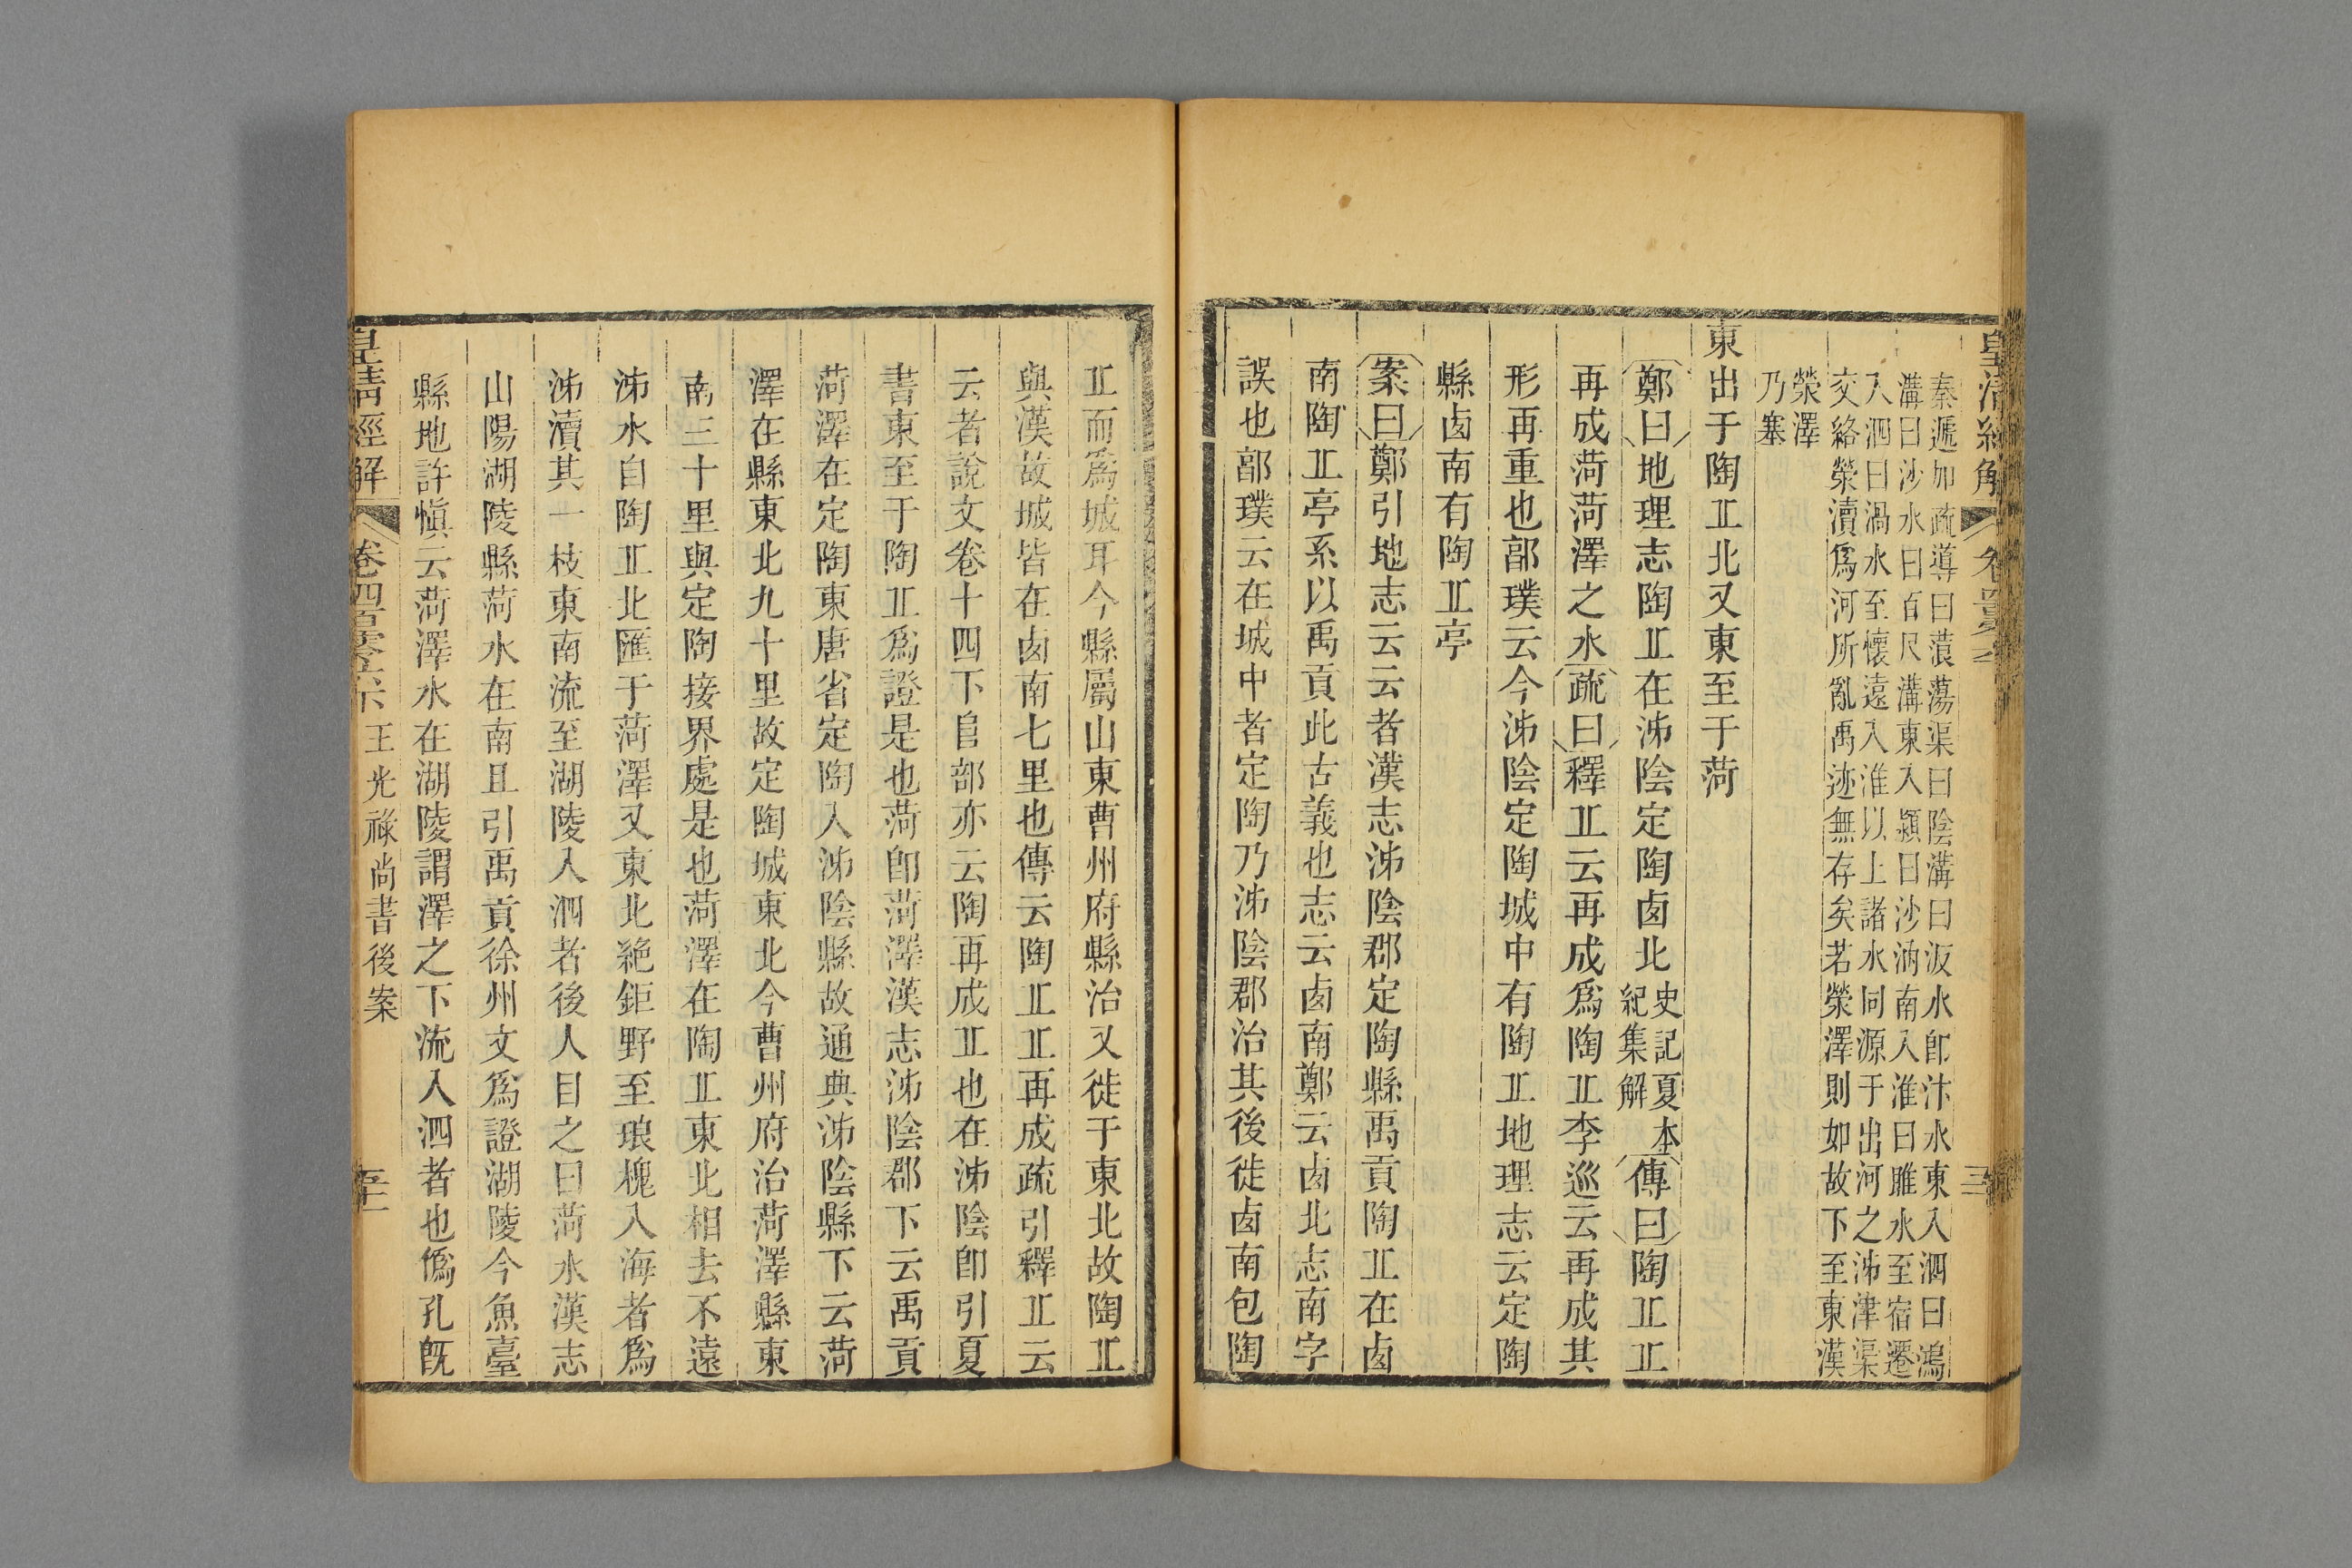 皇清經解
秦遞加疏導曰蒗蕩渠曰陰溝曰汳水卽汴水東入泗曰鴻
溝曰沙水曰百尺溝東入潁曰沙汭南入淮曰睢水至宿遷
入泗曰渦水至懷遠入淮以上諸水同源于出河之泲津渠
交絡滎瀆爲河所亂禹迹無存矣若滎澤則如故下至東漢
滎澤
乃塞
東出于陶丠北又東至于菏
鄭曰地理志陶丠在泲陰定陶卥北史記夏本紀集解傳曰陶丠丠
再成菏菏澤之水疏曰釋丠云再成爲陶丠李巡云再成其
形再重也郭璞云今泲陰定陶城中有陶丠地理志云定陶
縣卥南有陶丠亭
案曰鄭引地志云云者漢志泲陰郡定陶縣禹貢陶丠在卥
南陶丠亭系以禹貢此古義也志云卥南鄭云卥北志南字
誤也郭璞云在城中者定陶乃泲陰郡治其後徙卥南包陶
丠而爲城耳今縣屬山東曹州府縣治又徙于東北故陶丠
與漢故城皆在卥南七里也傳云陶丠丠再成疏引釋丠云
云者說文卷十四下𨸏部亦云陶再成丠也在泲陰卽引夏
書東至于陶丠爲證是也菏卽菏澤漢志泲陰郡下云禹貢
菏澤在定陶東唐省定陶入泲陰縣故通典泲陰縣下云菏
澤在縣東北九十里故定陶城東北今曹州府治菏澤縣東
南三十里與定陶接界處是也菏澤在陶丠東北相去不遠
泲水自陶丠北匯于菏澤又東北絶鉅野至琅槐入海者爲
泲瀆其一枝東南流至湖陵入泗者後人目之曰菏水漢志
山陽湖陵縣菏水在南且引禹貢徐州文爲證湖陵今魚臺
縣地許愼云菏澤水在湖陵謂澤之下流入泗者也僞孔旣
皇清經解 卷四百零六下 王光祿尚書後案